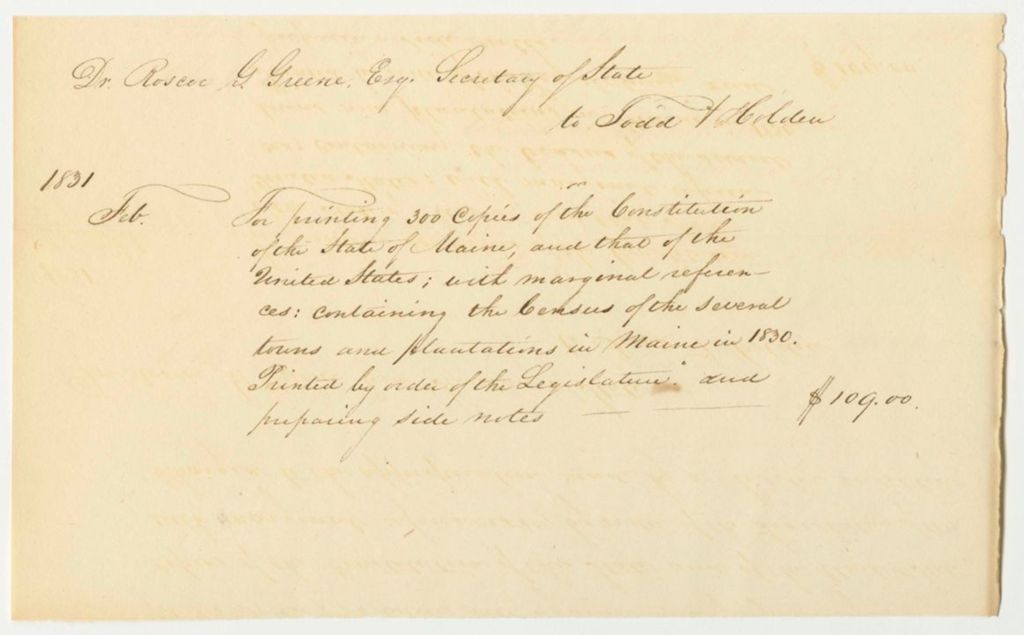 Dr. Roscoe G. Greene, Esq. Secretary of State
to Todd & Holden
1831
Feb. For printing 300 Copies of "the Constitution
of the State of Maine, and that of the
United States; with marginal referen-
ces: containing the Census of the several
towns and plantations in Maine in 1830.
Printed by order of the Legislature." and
preparing side notes — — $109.00.